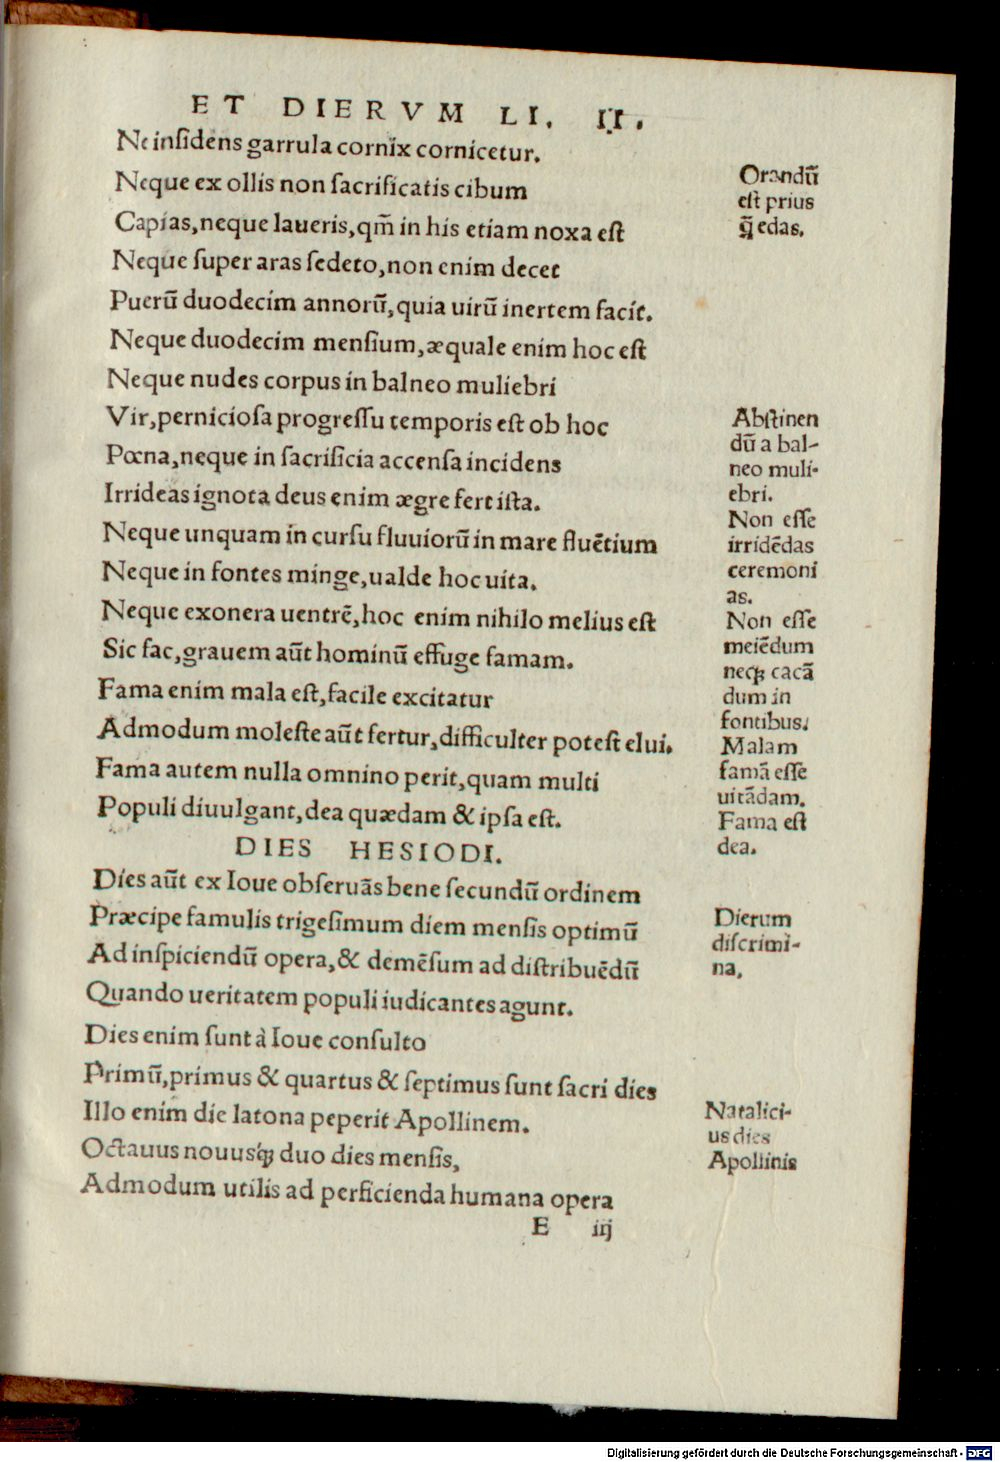 ET DIERVM LI. II.
Ne insidens garrula cornix cornicetur.
Neque ex ollis non sacrificatis cibum
Capias, neque laueris, qm̃ in his etiam noxa est
Neque super aras sedeto, non enim decet
Puerũ duodecim annorũ, quia uirũ inertem facit.
Neque duodecim mensium, æquale enim hoc est
Neque nudes corpus in balneo muliebri
Vir, perniciosa progressu temporis est ob hoc
Pœna, neque in sacrificia accensa incidens
Irrideas ignota deus enim ægre fert ista.
Neque unquam in cursu fluuiorũ in mare fluẽtium
Neque in fontes minge, ualde hoc uita.
Neque exonera uentrẽ, hoc enim nihilo melius est
Sic fac, grauem aũt hominũ effuge famam.
Fama enim mala est, facile excitatur
Admodum moleste aũt fertur, difficulter potest elui.
Fama autem nulla omnino perit, quam multi
Populi diuulgant, dea quædam & ipsa est.
DIES HESIODI.
Dies aũt ex Ioue obseruãs bene secundũ ordinem
Præcipe famulis trigesimum diem mensis optimũ
Ad inspiciendũ opera, & demẽsum ad distribuẽdũ
Quando ueritatem populi iudicantes agunt.
Dies enim sunt à Ioue consulto
Primũ, primus & quartus & septimus sunt sacri dies
Illo enim die latona peperit Apollinem.
Octauus nouusq́ꝫ duo dies mensis,
Admodum utilis ad perficienda humana opera
E iij
Orandũ
est prius
q̃ edas.
Abstinen
dũ a bal-
neo muli-
ebri.
Non esse
irridẽdas
ceremoni
as.
Non esse
meiẽdum
neqꝫ cacã
dum in
fontibus.
Malam
famã esse
uitãdam.
Fama est
dea.
Dierum
discrimi-
na.
Natalici-
us dies
Apollinis
Digitalisierung gefördert durch die Deutsche Forschungsgemeinschaft - DFG